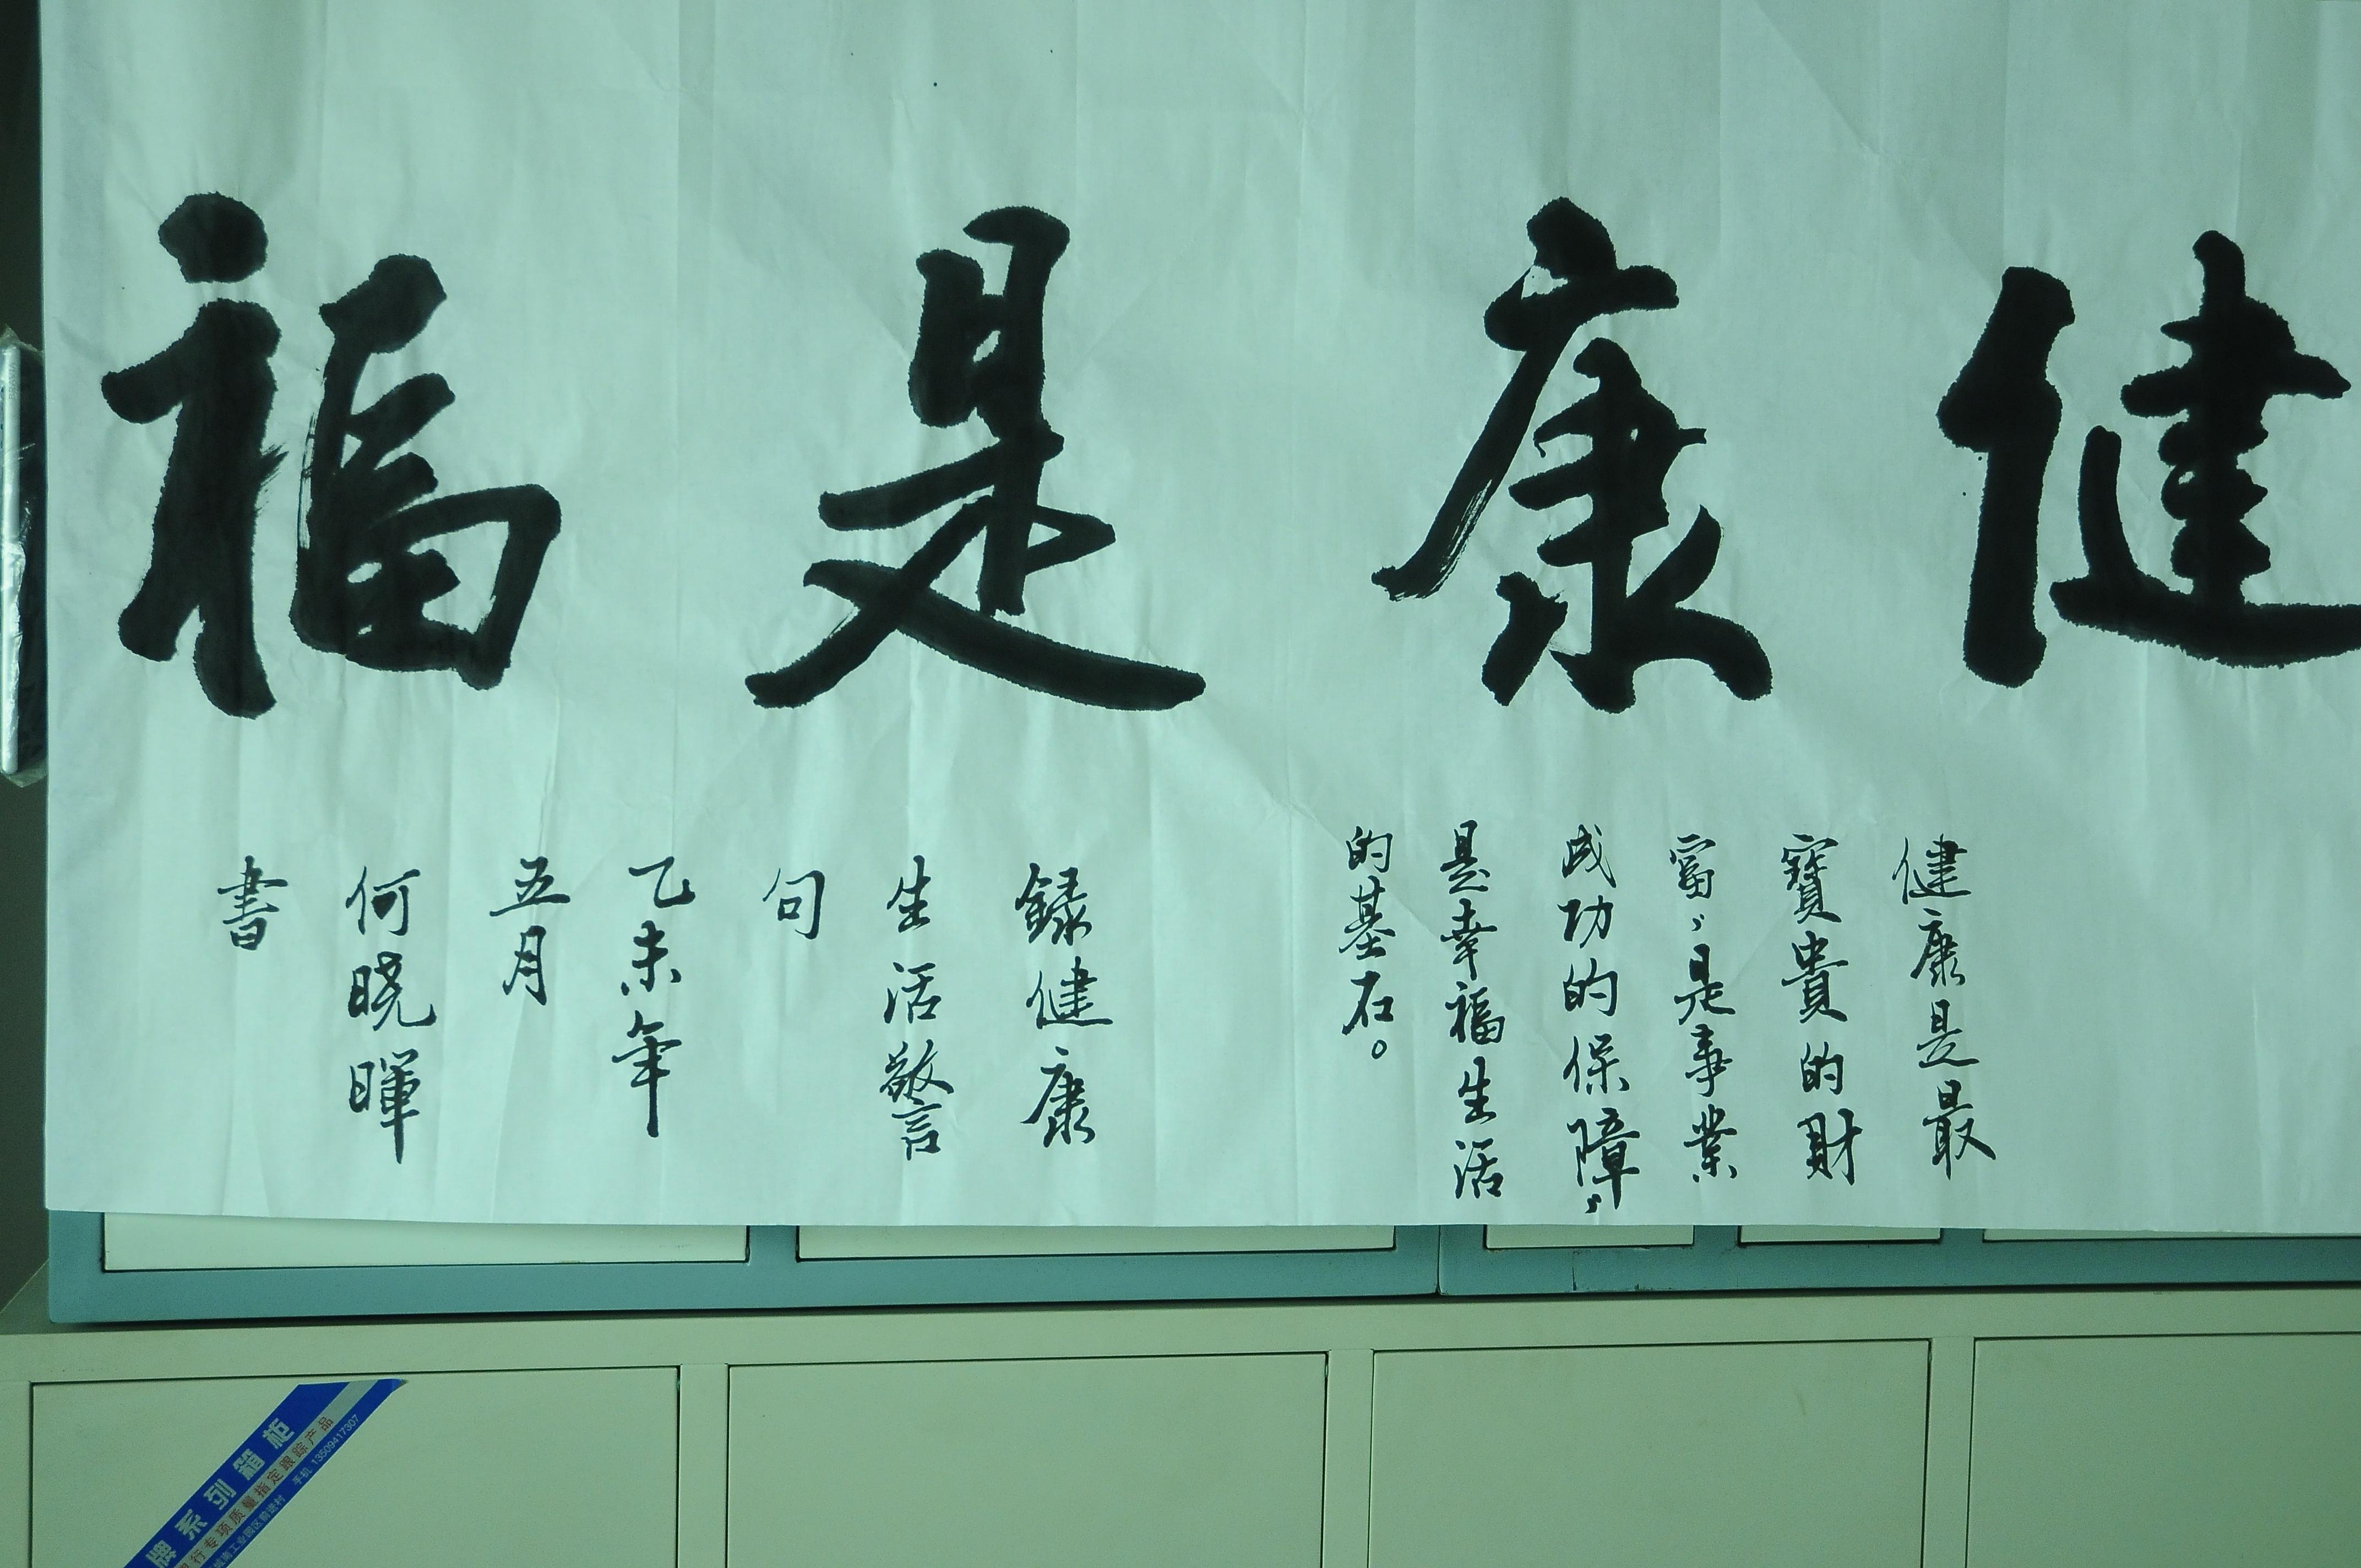 健康是福
健康是最
寶貴的財
富，是事業
成功的保障，
是幸福生活
的基石。
錄健康
生活警言
句
乙未年
五月
何晓暉
書
牌系列箱柜
行专项质量指定跟踪产品
工业园区 手机 13509417307